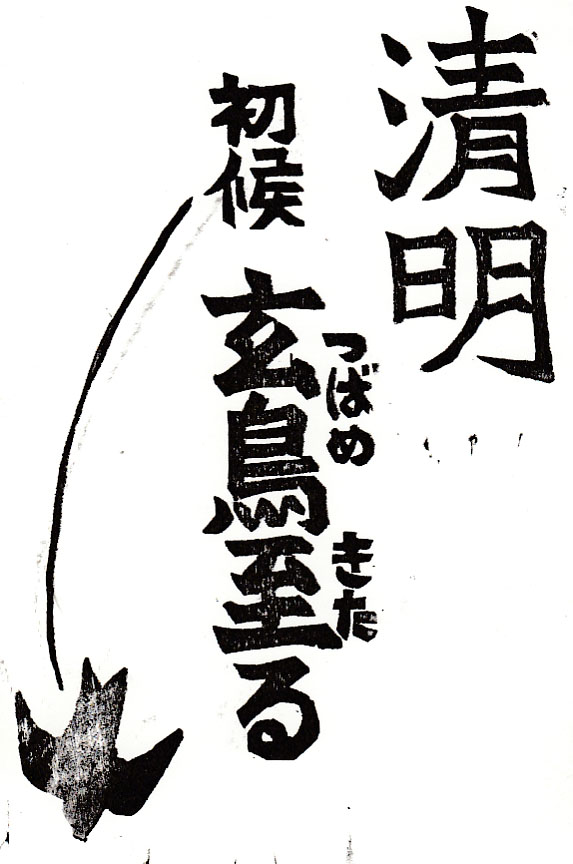 清明
つばめ きた
初候 玄鳥至る